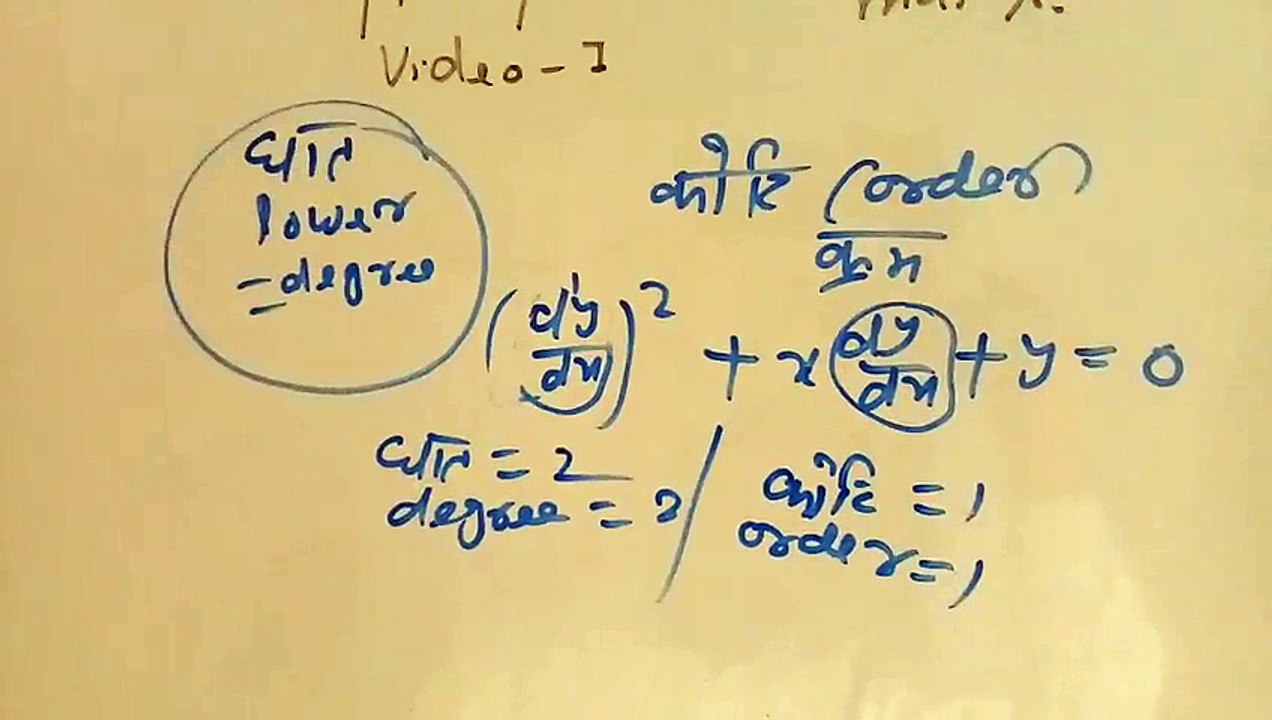 Video - I
घात
Power
= degree
कोटि (order)
क्रम
(dy/dx)² + x dy/dx + y = 0
घात = 2
degree = 2
कोटि = 1
order = 1